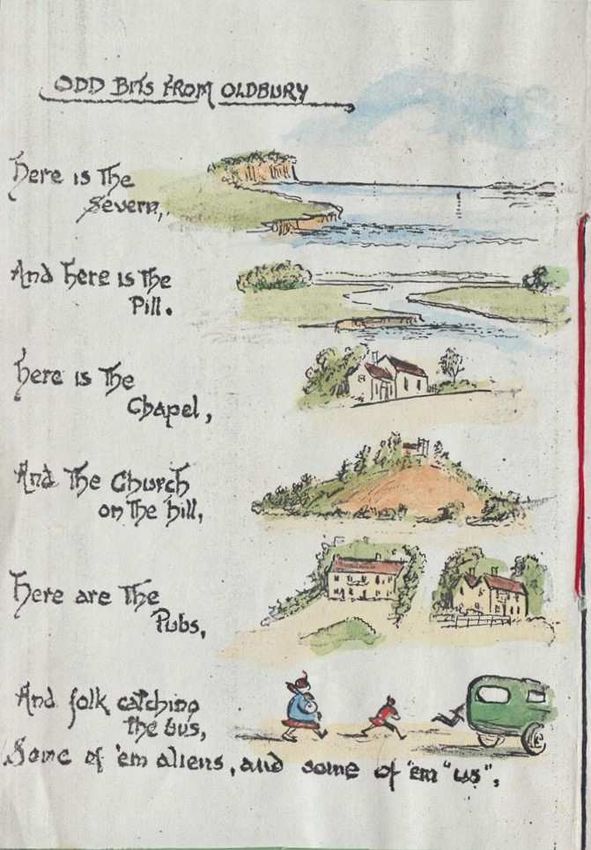 ODD BITS FROM OLDBURY
Here is The
Severn,
And here is The
Pill.
Here is The
Chapel,
And The Church
on The hill,
Here are The
Pubs,
And folk catching
the bus,
Some of 'em aliens, and some of "em "us",